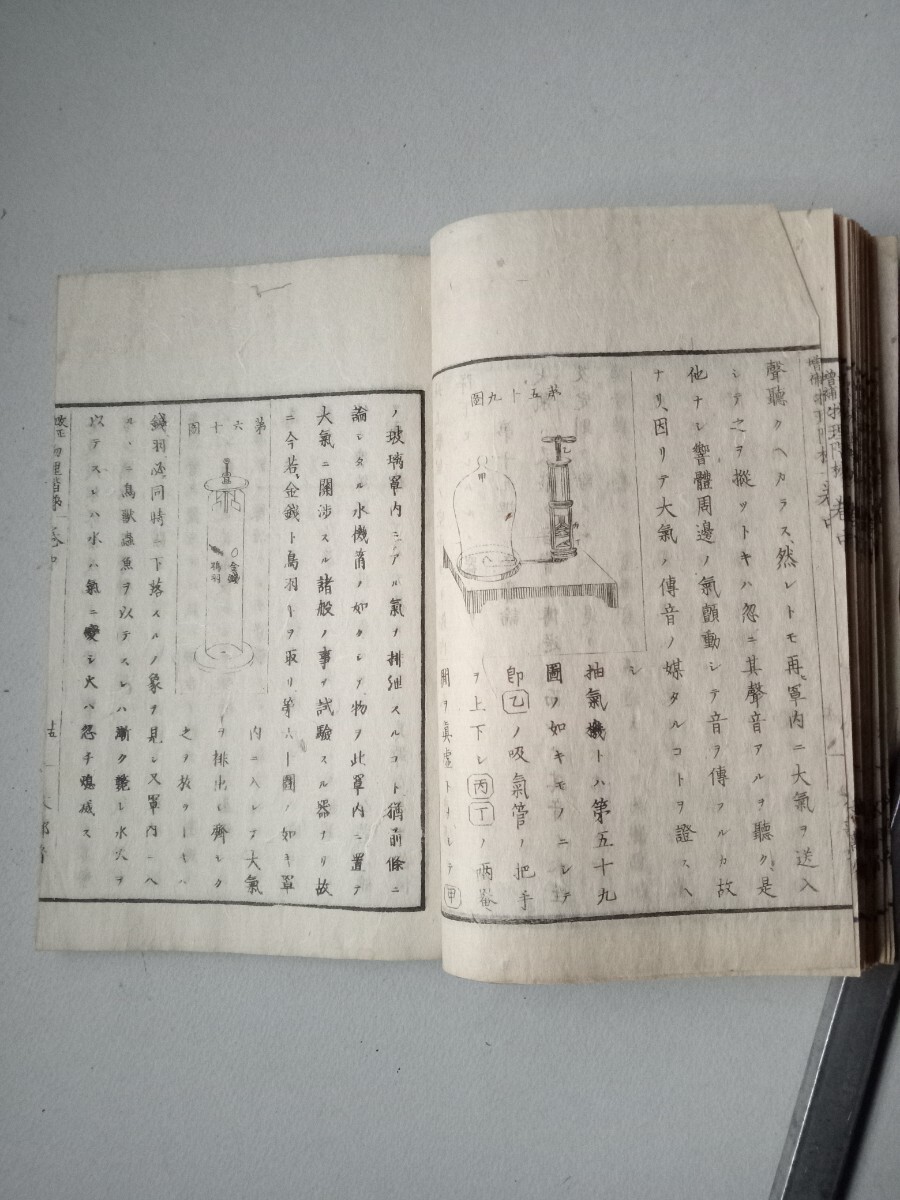 聲聽クヘカラス、然レトモ再、罩內ニ大氣ヲ送入
シテ之ヲ撥ツトキハ忽ニ其聲音アルヲ聽ク、是
他ナシ響體周邊ノ氣顫動シテ音ヲ傳フルカ故
ナリ、因リテ大氣ノ傳音ノ媒タルコトヲ證スヘ
シ
第五十九圖
甲
乙
抽氣機トハ第五十九
圖ノ如キモノニシテ
卽乙ノ吸氣管ノ把手
ヲ上下シ丙丁ノ兩
間ヲ眞虛トナシテ甲
ノ玻璃罩內ニアル氣ヲ排泄スルコト猶前條ニ
論シタル水機筩ノ如クシテ物ヲ此罩內ニ置テ
大氣ニ關涉スル諸般ノ事ヲ試驗スル器ナリ故
ニ今若、金錢ト鳥羽トヲ取リ第六十圖ノ如キ罩
內ニ入レテ大氣
ヲ排出シ齊シク
之ヲ放ツトキハ
第六十圖
金錢
鳥羽
錢羽必、同時ニ下落スルノ象ヲ見シ又罩內ニ入
ルヽニ鳥獸蟲魚ヲ以テスレハ漸ク斃レ水火ヲ
以テスレハ水ハ氣ニ變シ火ハ忽チ熄滅ス
改正物理階梯 卷中
十五